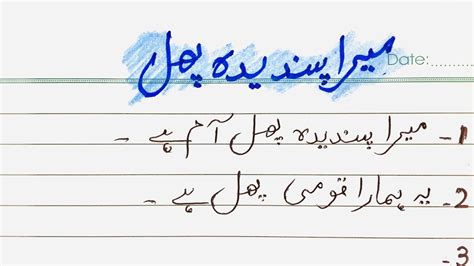 میرا پسندیدہ پھل
Date:..........
1- میرا پسندیدہ پھل آم ہے -
2- یہ ہمارا قومی پھل ہے -
3-